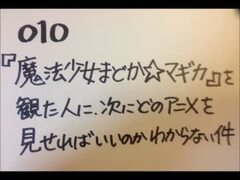 010
『魔法少女まどか☆マギカ』を
観た人に、次にどのアニメを
見せればいいのかわからない件